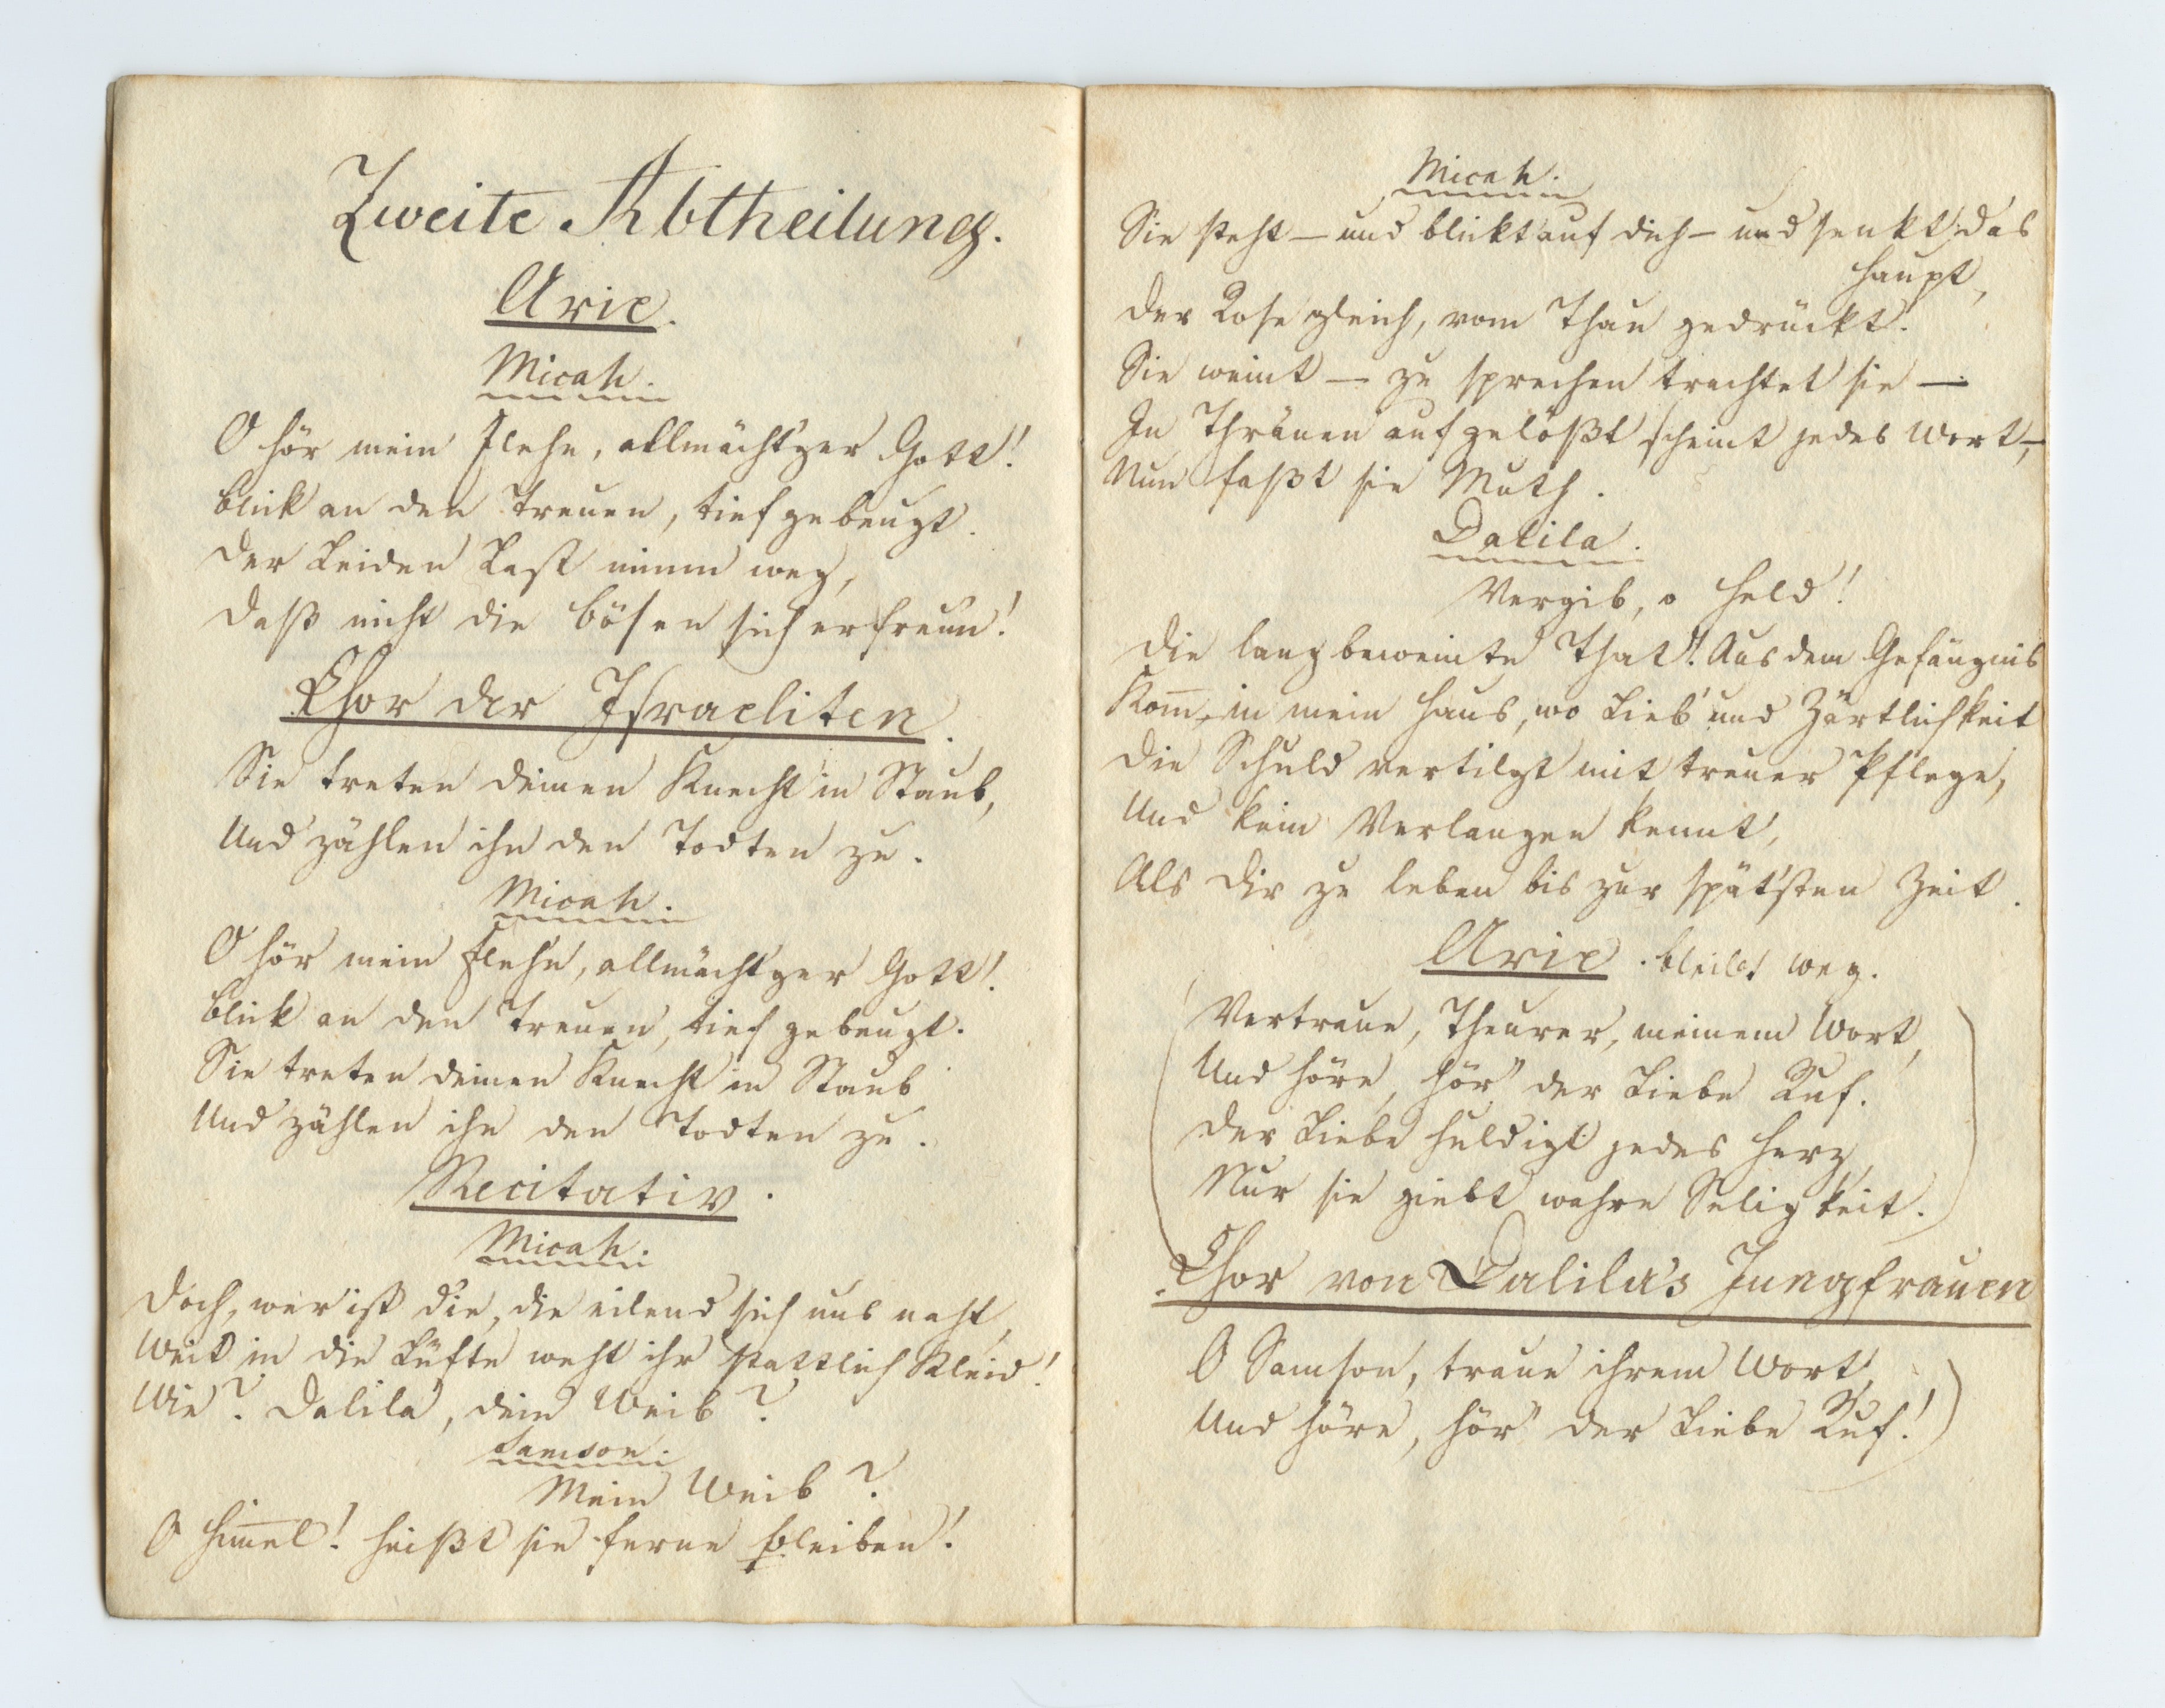 Zweite Abtheilung.
Arie.
Micah.
O hör mein Flehn, allmächt'ger Gott!
Blick an den Treuen, tief gebeugt.
Der Leiden Last nimm weg,
Daß nicht die Bösen sich erfreun!
Chor der Israeliten.
Sie treten deinen Knecht in Staub,
Und zählen ihn den Todten zu.
Micah.
O hör mein Flehn, allmächt'ger Gott!
Blick an den Treuen, tief gebeugt.
Sie treten deinen Knecht in Staub
Und zählen ihn den Todten zu.
Recitativ.
Micah.
Doch, wer ist die, die eilend sich uns naht,
Weit in die Lüfte weht ihr stattlich Kleid!
Wie? Dalila, dein Weib?
Samson.
Mein Weib?
O Him̄el! heißt sie ferne bleiben!
Micah.
Sie steht — und blickt auf dich — und senkt das
Haupt,
Der Rose gleich, vom Thau gedrückt.
Sie weint — zu sprechen trachtet sie —
In Thränen aufgelößt scheint jedes Wort, —
Nun faßt sie Muth.
Dalila.
Vergib, o Held!
Die lang beweinte That! Aus dem Gefängnis
Kom̄, in mein Haus, wo Lieb' und Zärtlichkeit
Die Schuld vertilgt mit treuer Pflege,
Und kein Verlangen kennt,
Als dir zu leben bis zur spät'sten Zeit.
Arie. bleibt weg.
(Vertraue, Theurer, meinem Wort,
Und höre, hör' der Liebe Ruf.
Der Liebe huldigt jedes Herz,
Nur sie giebt wahre Seligkeit.)
Chor von Dalila's Jungfrauen
O Samson, traue ihrem Wort,
Und höre, hör' der Liebe Ruf!)